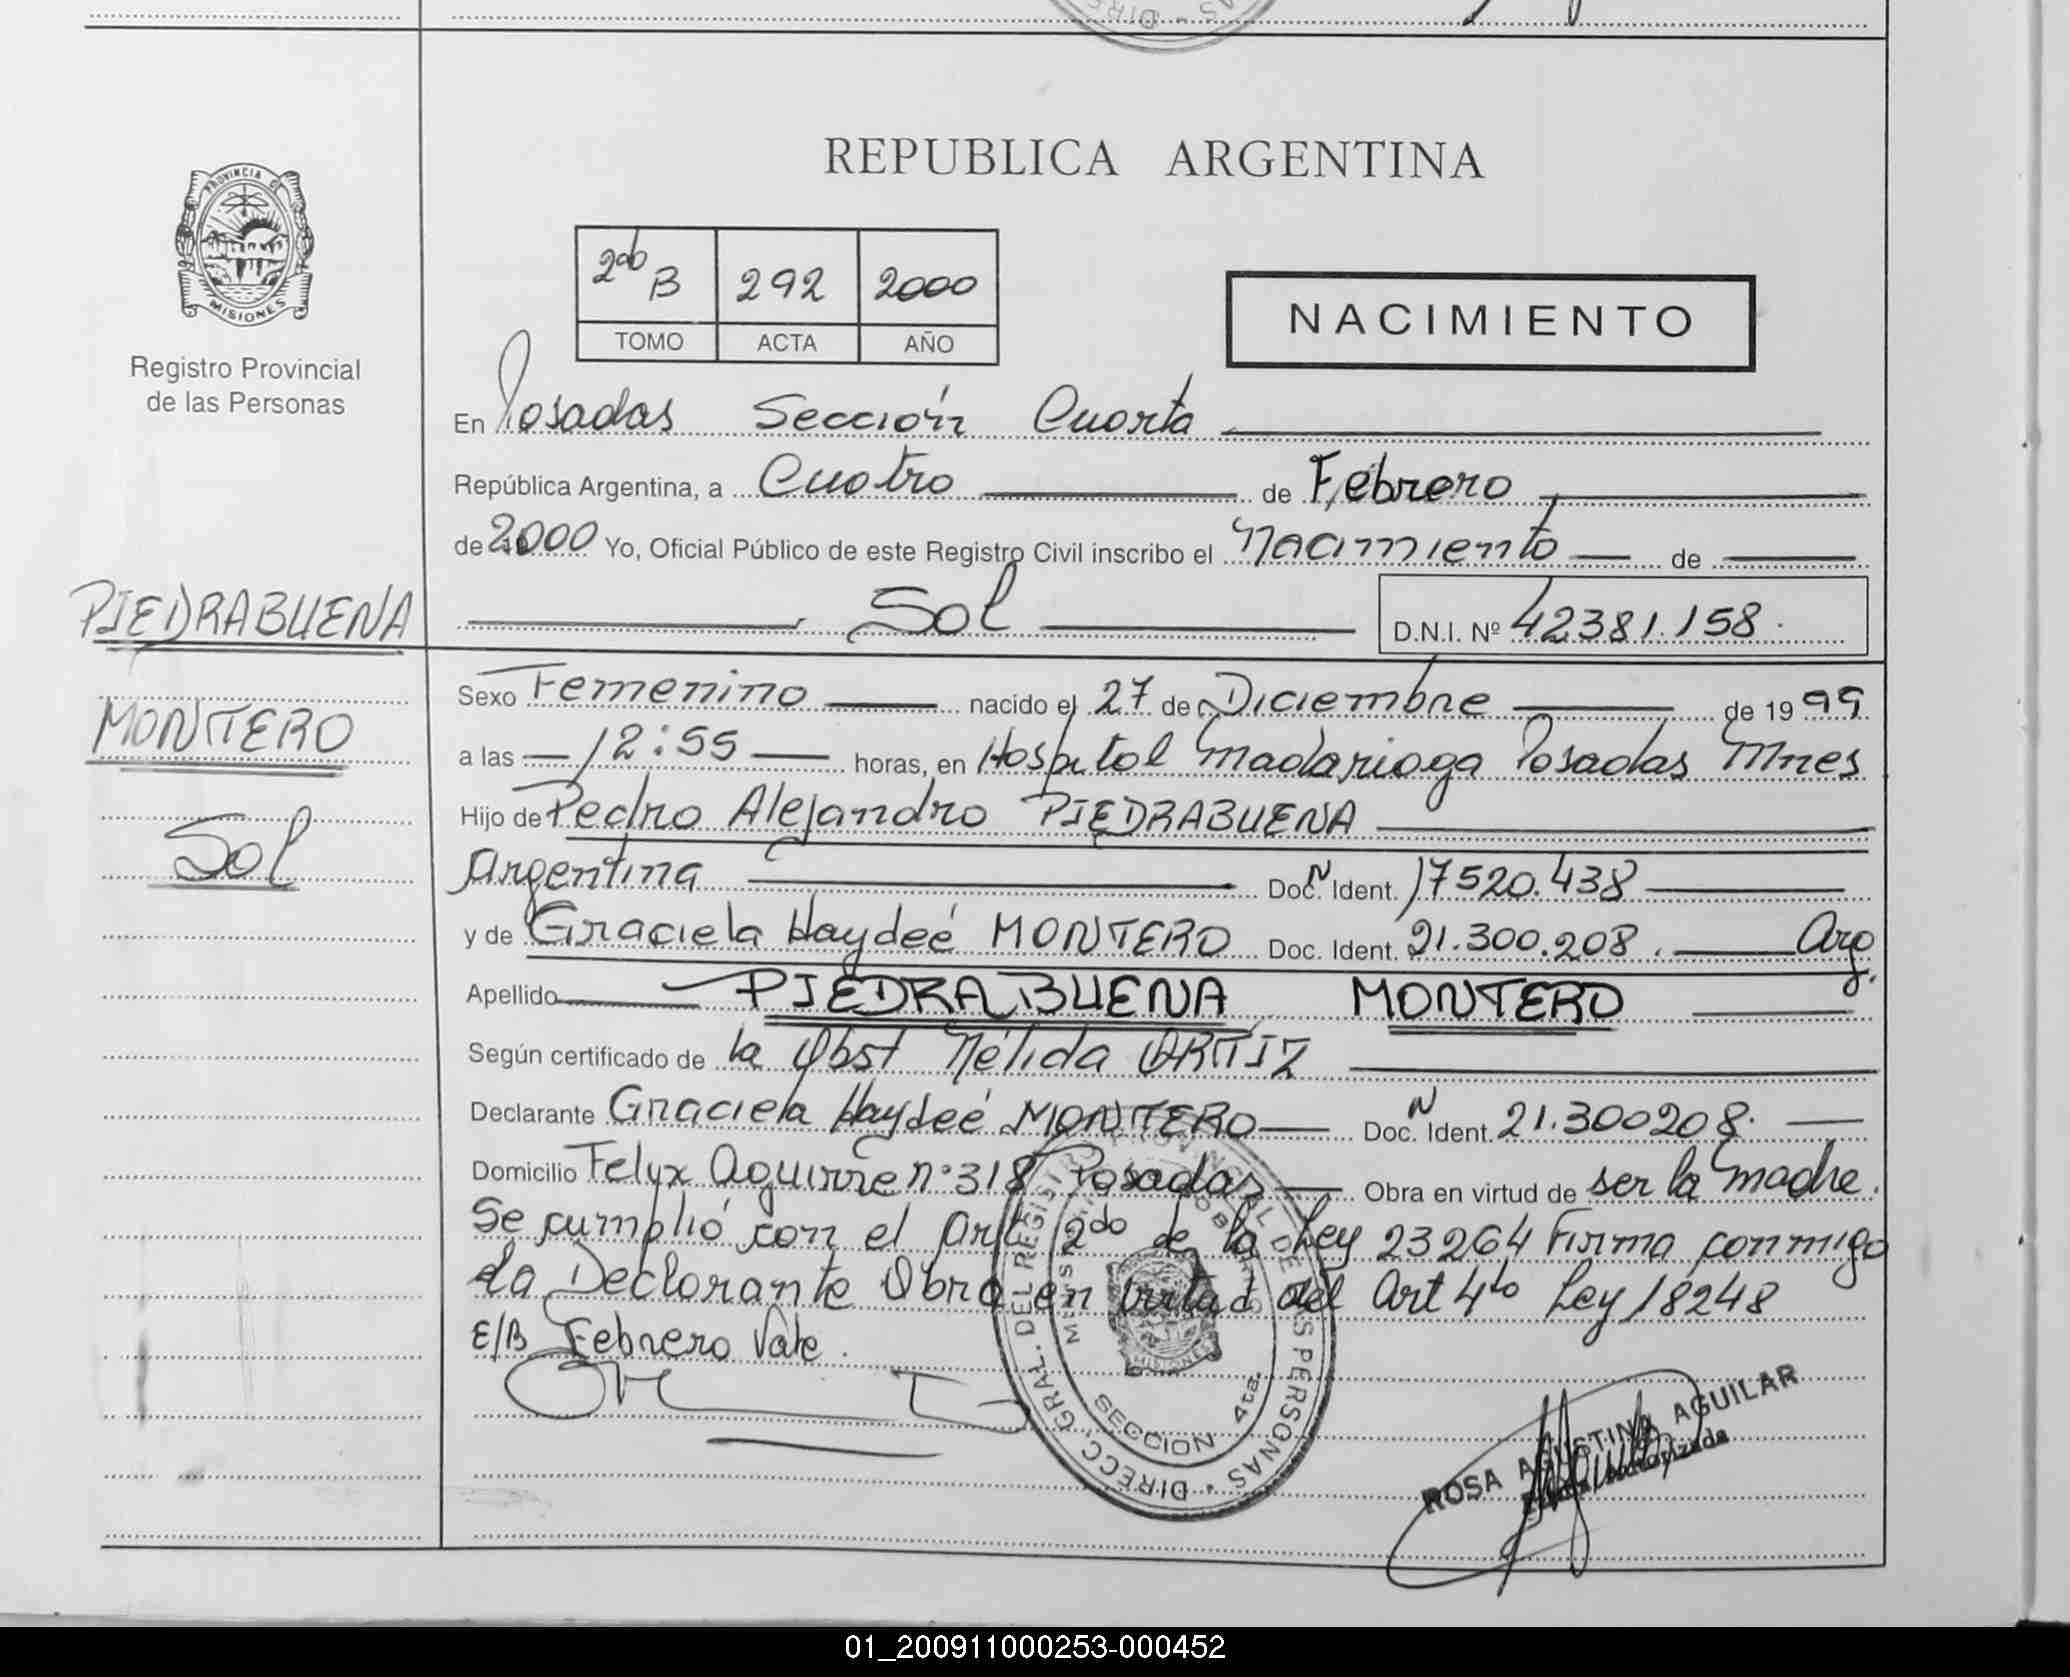 REPUBLICA ARGENTINA
PROVINCIA D
MISIONES
Registro Provincial
de las Personas
2do B 292 2000
TOMO ACTA AÑO
NACIMIENTO
En Posadas Sección Cuarta
República Argentina, a Cuatro de Febrero
de 2000 Yo, Oficial Público de este Registro Civil inscribo el Nacimiento de
Sol D.N.I. Nº 42381.158
PIEDRABUENA
MONTERO
Sol
Sexo Femenino nacido el 27 de Diciembre de 1999
a las 12:55 horas, en Hospital Madariaga Posadas Mnes
Hijo de Pedro Alejandro PIEDRABUENA
Argentina Doc. N Ident. 17520.438
y de Graciela Haydeé MONTERO Doc. Ident. 21.300.208. Arg.
Apellido PIEDRABUENA MONTERO
Según certificado de la Obst Nélida ORTIZ
Declarante Graciela Haydeé MONTERO Doc. N Ident. 21.300208.
Domicilio Felyx Aguirre nº 318 Posadas Obra en virtud de ser la Madre.
Se cumplió con el Art 2do de la Ley 23264 Firma conmigo
la Declarante Obra en virtud del Art 4to Ley 18248
E/B Febrero Vale.
DIRECC. GRAL. DEL REGISTRO PROVINCIAL DE LAS PERSONAS
MISIONES
SECCION 4ta.
ROSA AGUSTINA AGUILAR
Autorizada
01_200911000253-000452